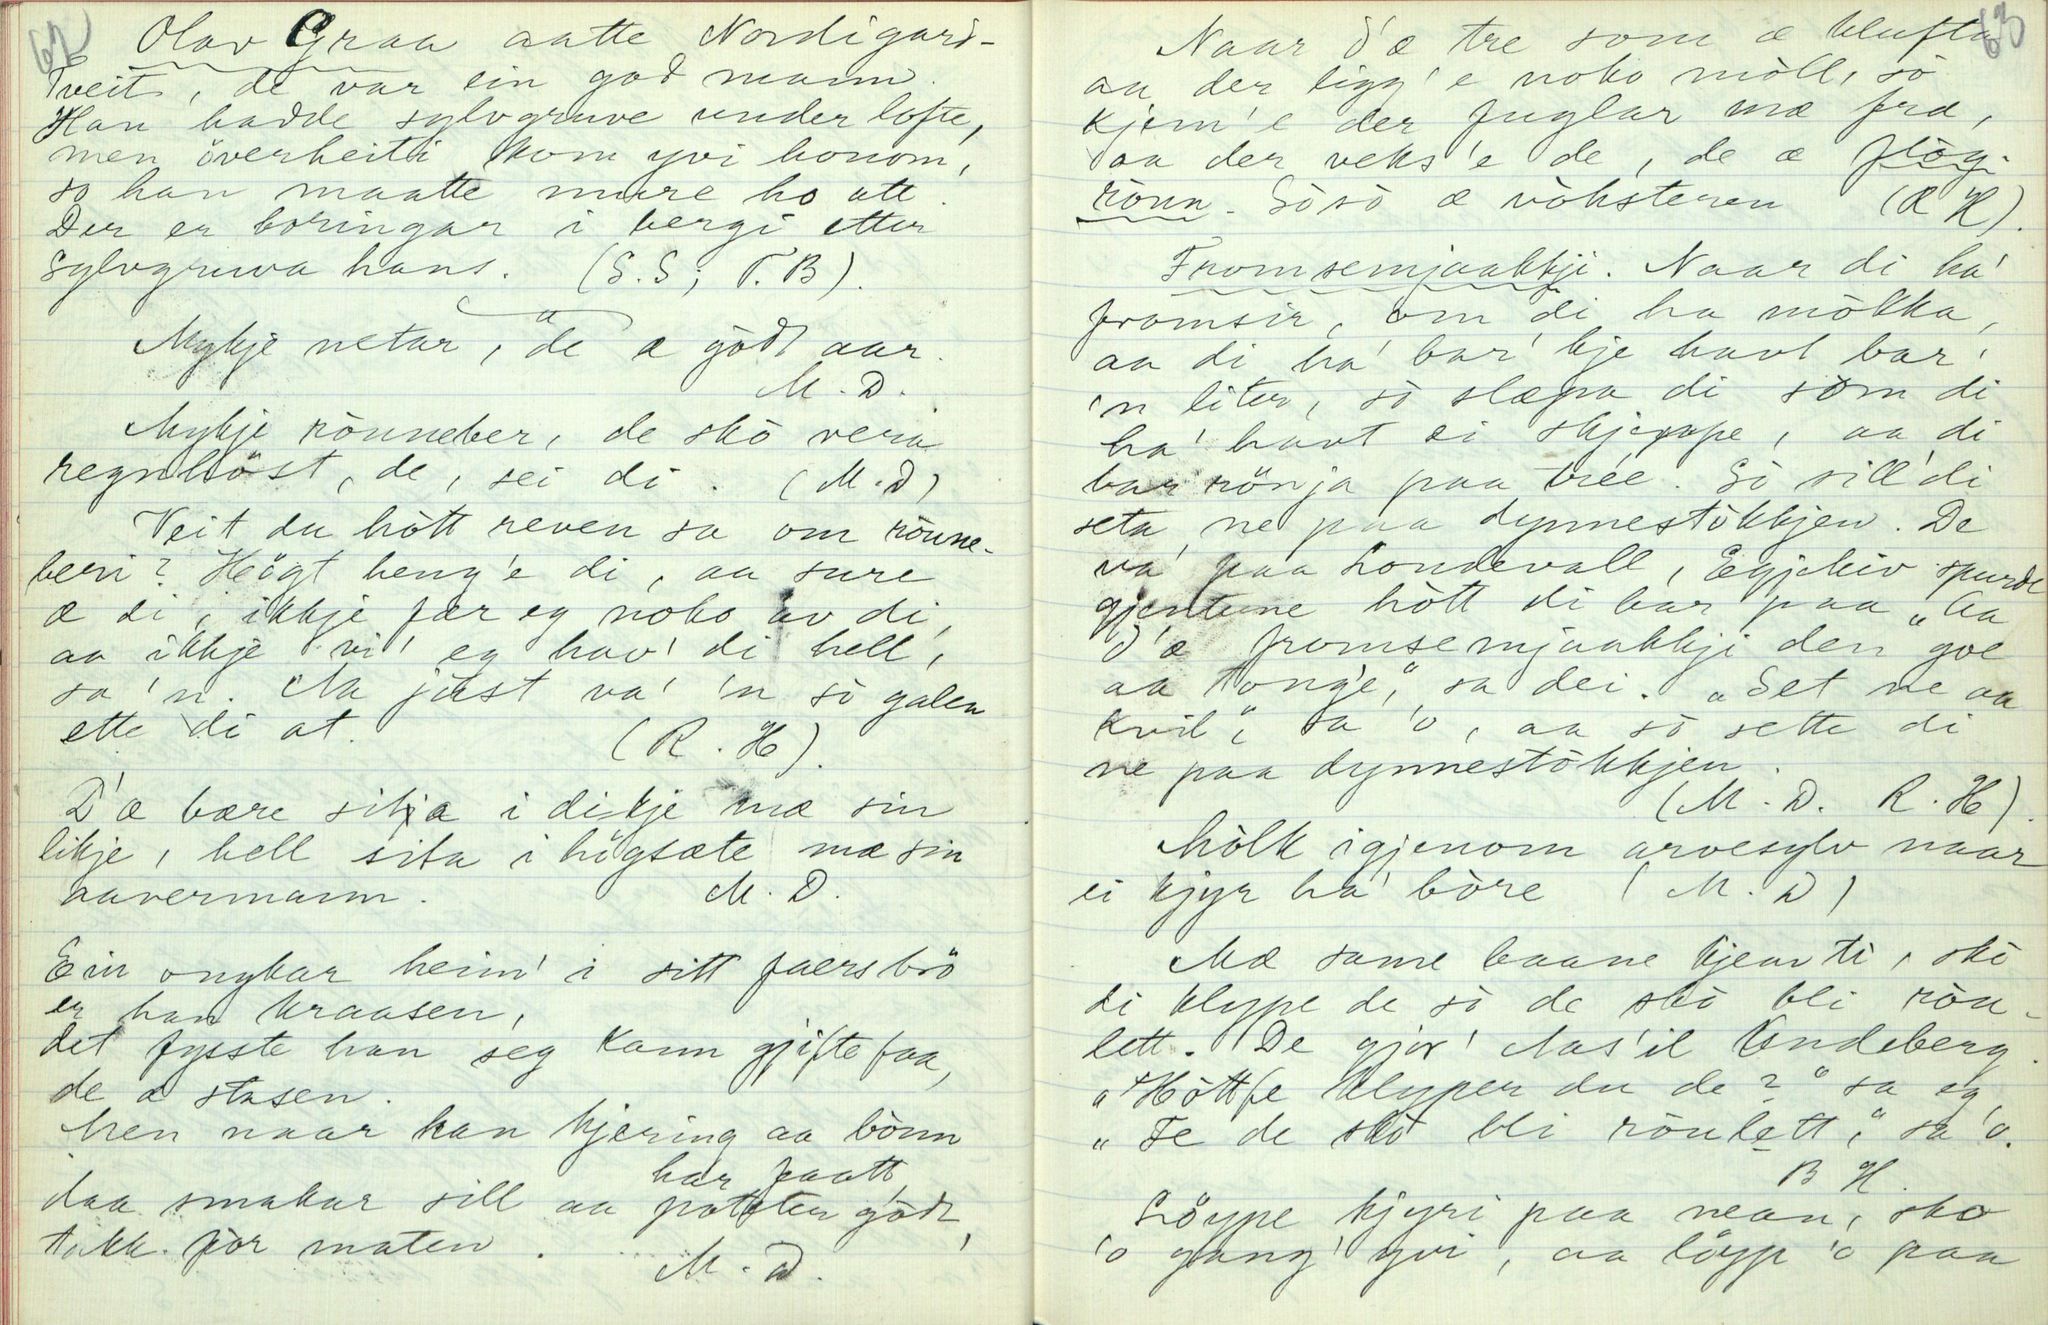 62
Olav Graa aatte Nordigard-
Tveit, de var ein god mann.
Han hadde sylvgruve under lofte,
men överheiti kom yvi honom,
so han maatte mure ho att.
Der er boringar i bergi etter
sylvgruva hans. (S.S; T.B).
Mykje netar, de æ gödt aar.
M.D.
Mykje rönneber, de skö vera
regnhöst, de, sei di. (M.D)
Veit du hött reven sa om rönne-
beri? Högt heng'e di, aa sure
æ di, ikkje fær eg noko av di,
aa ikkje vi' eg hav' di hell,
sa 'n. Aa jüst va' 'n sö galen
ette di at. (R.H).
D'æ bære sitja i dikje mæ sin
likje, hell sita i högsæte mæ sin
aavermann. M.D.
Ein ongkar heim' i sitt faersbrö
er han kraasen,
det fysste han seg kann gjifte faa,
de æ stasen.
Men naar han kjering aa bönn
har faatt,
daa smakar sill aa poteter gödt,
takk för maten.
M.D.
63
Naar d'æ tre som æ klufta
aa der ligg'e noko möll, sö
kjem'e der fuglar mæ fræ,
aa der veks'e de, de æ flög-
rönn. Sösö æ vöksteren (R H).
Fromsemjaakkji. Naar di ha'
fromsir, om di ha mölka,
aa di ha' bar' kje havt bar'
'n liter, sö slæpa di söm di
ha' havt ei skjeppe, aa di
bar rönja paa tree. Sö sill' di
seta ne paa dynnestökkjen. De
va' paa Londevall, Egjeliv spurde
gjentune hött di bar paa. "Aa
d'æ fromsemjaakkji den goe
aa tonge," sa dei. "Set ne aa
kvil," sa 'o, aa sö sette di
ne paa dynnestökkjen.
(M.D. R.H).
Mölk igjenom arvesylv naar
ei kjyr ha' böre (M.D)
Mæ same baane kjem ti, skö
di klype de sö de skö bli rön-
lett. De gjor' Aas'il Undeberg.
"Hött fe klyper du de?" sa eg.
"Fe de skö bli rönlett," sa 'o.
B H.
Löype kjyri paa nean, sko
'o gang' yvi, aa löyp 'o paa